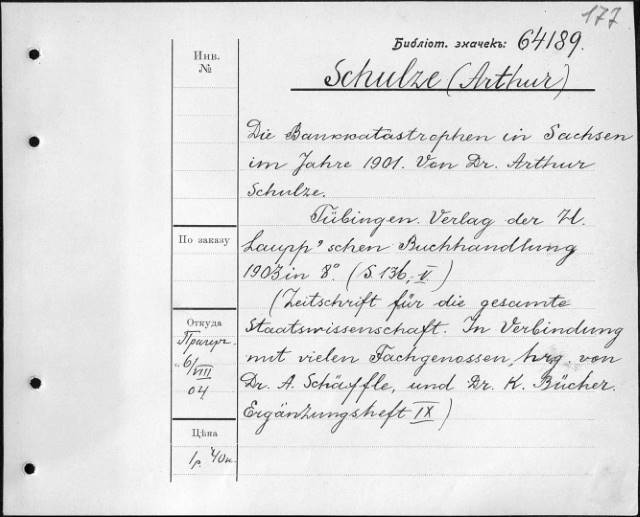 177
Библіот. значекъ: 64189.
Schulze (Arthur)
Инв.
№
Die Bankkatastrophen in Sachsen
im Jahre 1901. Von Dr. Arthur
Schulze.
Tübingen. Verlag der H.
Laupp'schen Buchhandlung
1903 in 8° (S. 136, V)
(Zeitschrift für die gesamte
Staatswissenschaft. In Verbindung
mit vielen Fachgenossen hrg. von
Dr. A. Schäffle, und Dr. K. Bücher.
Ergänzungsheft IX)
По заказу
Откуда
6/VIII
04
Цѣна
1 р. 40 к.